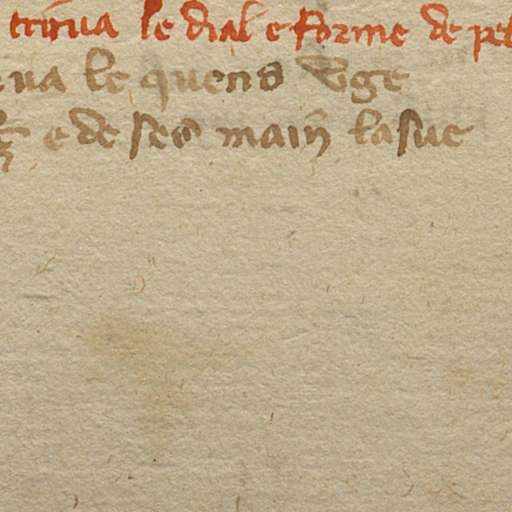 truua le dial e forme de pel
ua le quens Vge
e de ses main lasue